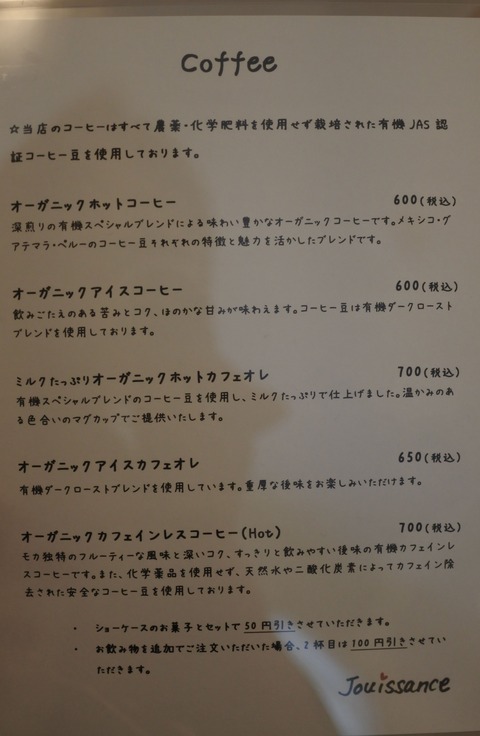 Coffee
☆当店のコーヒーはすべて農薬・化学肥料を使用せず栽培された有機JAS認
証コーヒー豆を使用しております。
オーガニックホットコーヒー 600(税込)
深煎りの有機スペシャルブレンドによる味わい豊かなオーガニックコーヒーです。メキシコ・グ
アテマラ・ペルーのコーヒー豆それぞれの特徴と魅力を活かしたブレンドです。
オーガニックアイスコーヒー 600(税込)
飲みごたえのある苦みとコク、ほのかな甘みが味わえます。コーヒー豆は有機ダークロースト
ブレンドを使用しております。
ミルクたっぷりオーガニックホットカフェオレ 700(税込)
有機スペシャルブレンドのコーヒー豆を使用し、ミルクたっぷりで仕上げました。温かみのあ
る色合いのマグカップでご提供いたします。
オーガニックアイスカフェオレ 650(税込)
有機ダークローストブレンドを使用しています。重厚な後味をお楽しみいただけます。
オーガニックカフェインレスコーヒー(Hot) 700(税込)
モカ独特のフルーティーな風味と深いコク、すっきりと飲みやすい後味の有機カフェインレ
スコーヒーです。また、化学薬品を使用せず、天然水や二酸化炭素によってカフェイン除
去された安全なコーヒー豆を使用しております。
・ ショーケースのお菓子とセットで50円引きさせていただきます。
・ お飲み物を追加でご注文いただいた場合、2杯目は100円引きさせてい
ただきます。
Jouissance